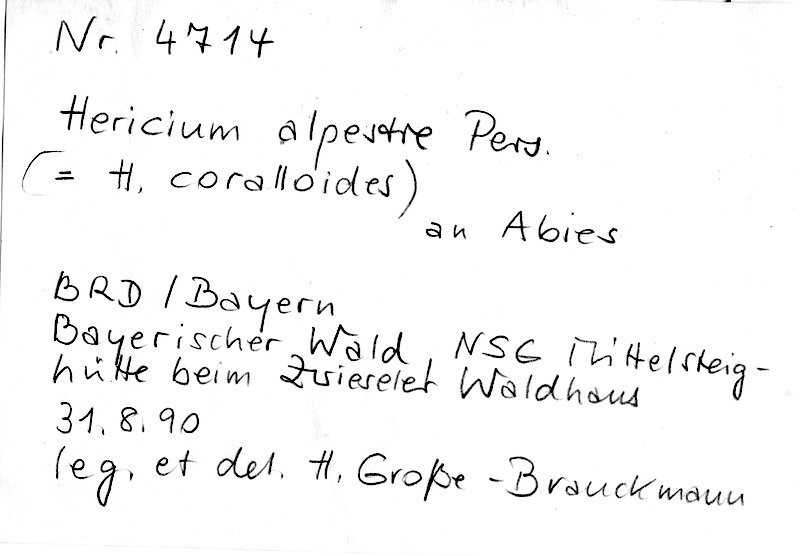 Nr. 4714
Hericium alpestre Pers.
(= H. coralloides)
an Abies
BRD / Bayern
Bayerischer Wald, NSG Mittelsteig-
hütte beim Zwieseler Waldhaus
31.8.90
leg. et det. H. Große-Brauckmann